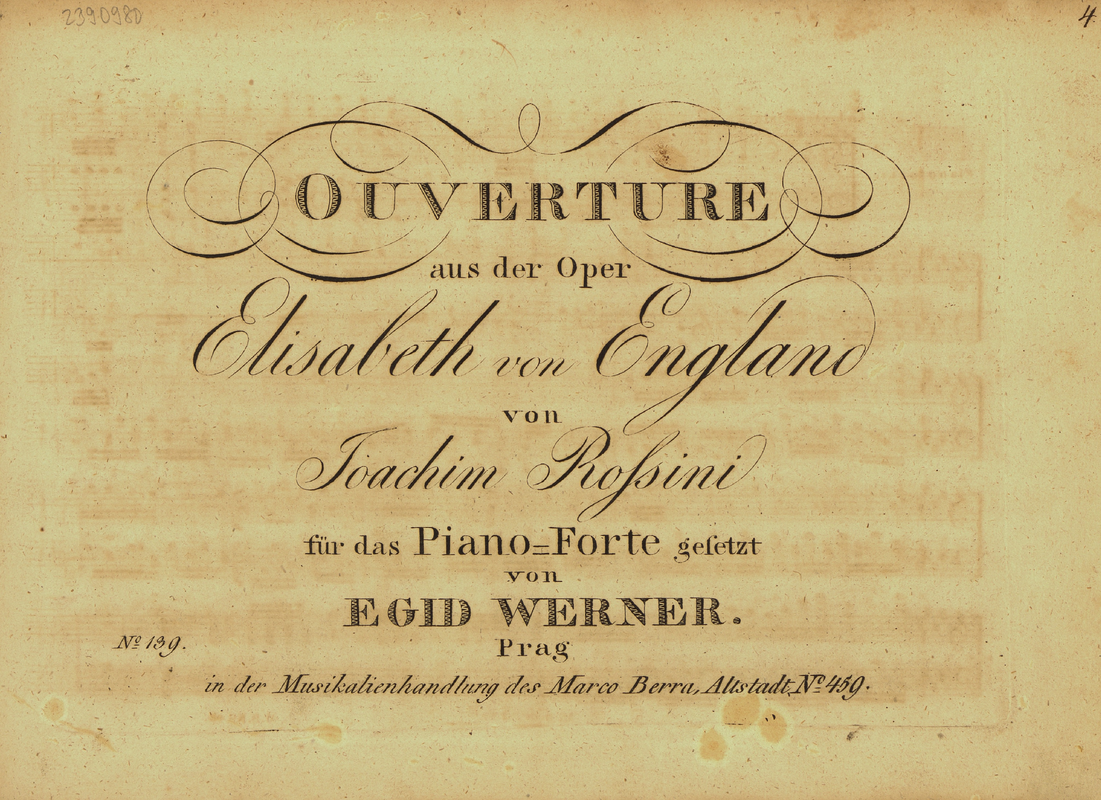 2390980
4
OUVERTURE
aus der Oper
Elisabeth von England
von
Joachim Roſsini
für das Piano=Forte geſetzt
von
EGID WERNER.
Prag
No 139.
in der Musikalienhandlung des Marco Berra, Altstadt No 459.